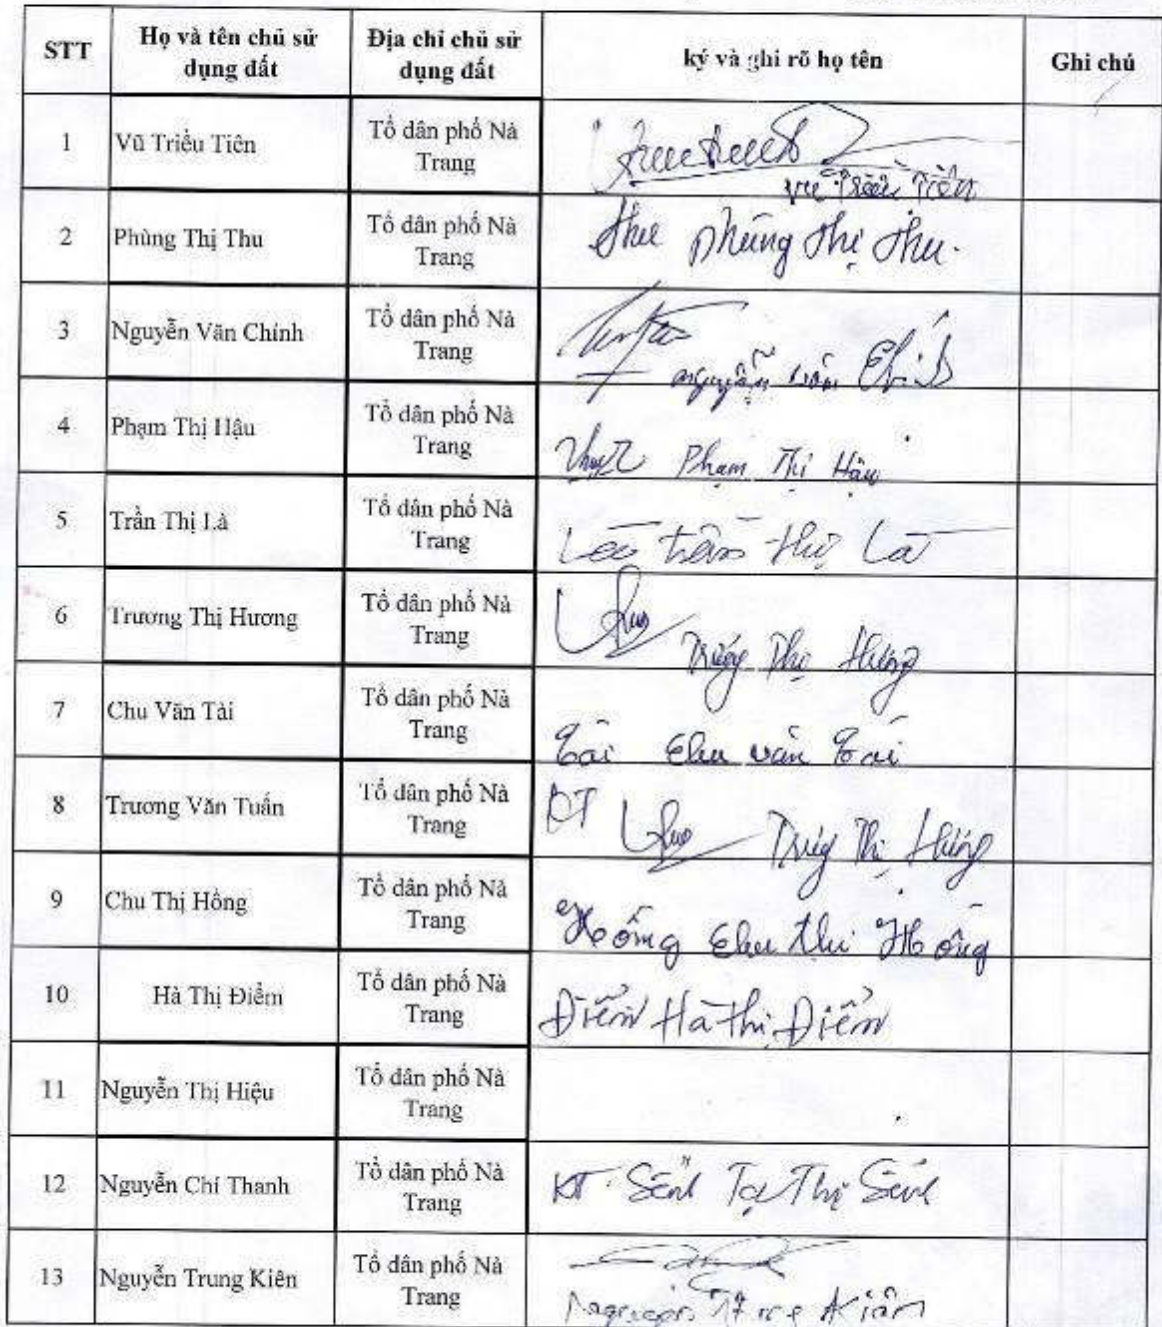 STT
Họ và tên chủ sử dụng đất
Địa chỉ chủ sử dụng đất
ký và ghi rõ họ tên
Ghi chú
1
Vũ Triều Tiên
Tổ dân phố Nà Trang
Vũ Triều Tiên
2
Phùng Thị Thu
Tổ dân phố Nà Trang
Thu Phùng Thị Thu
3
Nguyễn Văn Chính
Tổ dân phố Nà Trang
Nguyễn Văn Chính
4
Phạm Thị Hậu
Tổ dân phố Nà Trang
Phạm Thị Hậu
5
Trần Thị Là
Tổ dân phố Nà Trang
Trần Thị Là
6
Trương Thị Hương
Tổ dân phố Nà Trang
Trương Thị Hương
7
Chu Văn Tài
Tổ dân phố Nà Trang
Tài Chu Văn Tài
8
Trương Văn Tuấn
Tổ dân phố Nà Trang
KT Trương Thị Hương
9
Chu Thị Hồng
Tổ dân phố Nà Trang
Hồng Chu Thị Hồng
10
Hà Thị Điểm
Tổ dân phố Nà Trang
Điểm Hà Thị Điểm
11
Nguyễn Thị Hiệu
Tổ dân phố Nà Trang
12
Nguyễn Chí Thanh
Tổ dân phố Nà Trang
KT Thị
13
Nguyễn Trung Kiên
Tổ dân phố Nà Trang
Nguyễn Trung Kiên